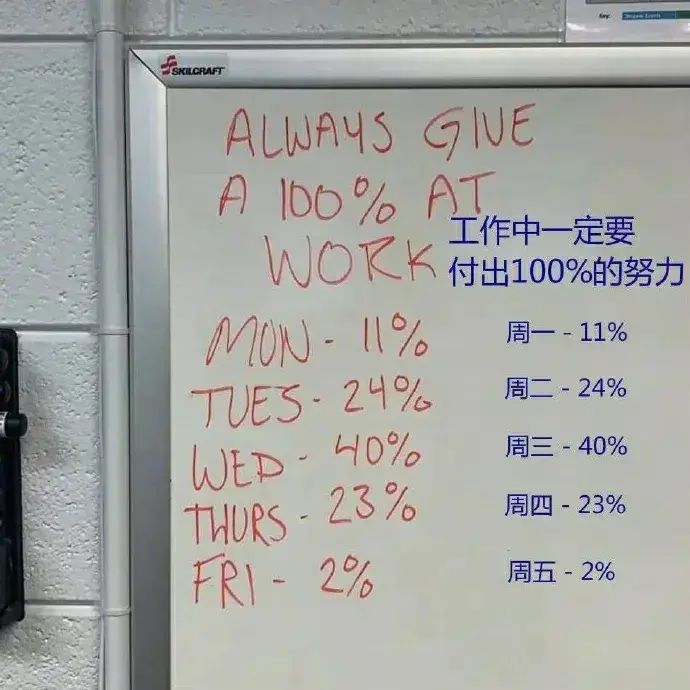 SKILCRAFT
ALWAYS GIVE
A 100% AT
WORK
工作中一定要
付出100%的努力
MON - 11%
周一 - 11%
TUES - 24%
周二 - 24%
WED - 40%
周三 - 40%
THURS - 23%
周四 - 23%
FRI - 2%
周五 - 2%